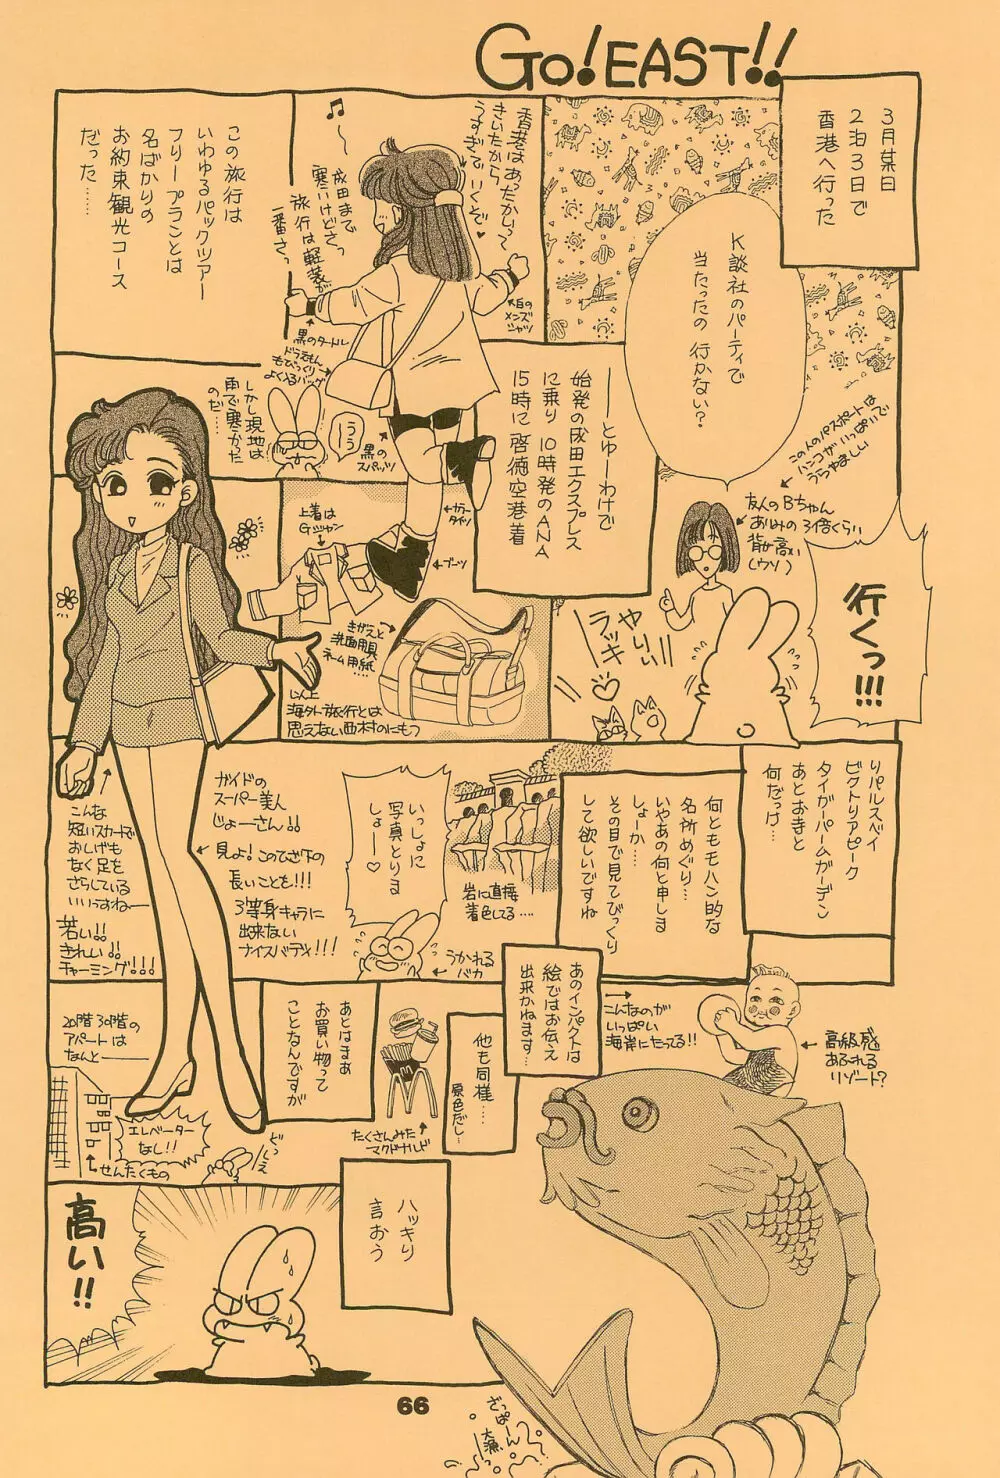 GO! EAST!!
3月某日
2泊3日で
香港へ行った
K談社のパーティで
当たったの 行かない?
この人のパスポートは
ハンコがいっぱいで
うらやましい
友人のBちゃん
あゆみの3倍くらい
背が高い
(ウソ)
行くっ!!!
やりぃぃ!!
ラッキー♡
――とゆーわけで
始発の成田エクスプレス
に乗り 10時発のANA
15時に啓徳空港着
香港はあったかいって
きいたから
うすぎでいくぞ♥
♪〜
成田まで
寒いけどさっ
旅行は軽装が
一番さっ
大白の
メンズ
シャツ
黒のタートル
ドラえもん
もびっくり
よく入るバッグ
黒の
スパッツ
カラー
タイツ
ブーツ
この旅行は
いわゆるパックツアー
フリープランとは
名ばかりの
お約束観光コース
だった……
しかし現地は
雨で寒かった
のだ……
うぅ〜
上着は
Gジャン
きがえと
洗面用具
ネーム用紙
以上
海外旅行とは
思えない西村のにもつ
リパルスベイ
ビクトリアピーク
タイガーバームガーデン
あとおきと
何だっけ…
何ともモハン的な
名所めぐり…
いやあの何と申しま
しょーか…
その目で見てびっくり
して欲しいですね
岩に直接
着色してる….
いっしょに
写真とりま
しょー♡
うかれる
バカ
ガイドの
スーパー美人
じょーさん!!
見よ!このひざ下の
長いことを!!!
3等身キャラに
出来ない
ナイスバディ!!!
こんな
短いスカートで
おしげも
なく足を
さらしている
いいっすねー
若い!!
きれい!!
チャーミング!!!
あのインパクトは
絵ではお伝え
出来かねます…
こんなのが
いっぱい
海岸にたってる!!
高級感
あふれる
リゾート?
他も同様…
原色だし…
たくさんみた
マクドナルド
あとはまぁ
お買い物って
ことなんですが
20階 30階の
アパートは
なんと――
エレベーター
なし!!
せんたくもの
どっしぇ〜
ハッキリ
言おう
高い!!
ざっぱーん
大漁〜
66